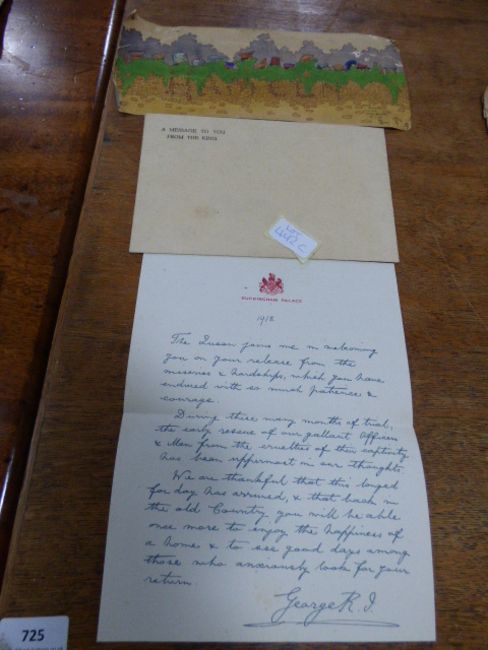 A MESSAGE TO YOU
FROM THE KING
LOT
BUCKINGHAM PALACE
1918
The Queen joins me in welcoming
you on your release from the
miseries & hardships, which you have
endured with so much patience &
courage.
During these many months of trial,
the early rescue of our gallant Officers
& Men from the cruelties of their captivity
has been uppermost in our thoughts.
We are thankful that this longed
for day has arrived, & that back in
the old Country you will be able
once more to enjoy the happiness of
a home & to see good days among
those who anxiously look for your
return.
George R.I.
725